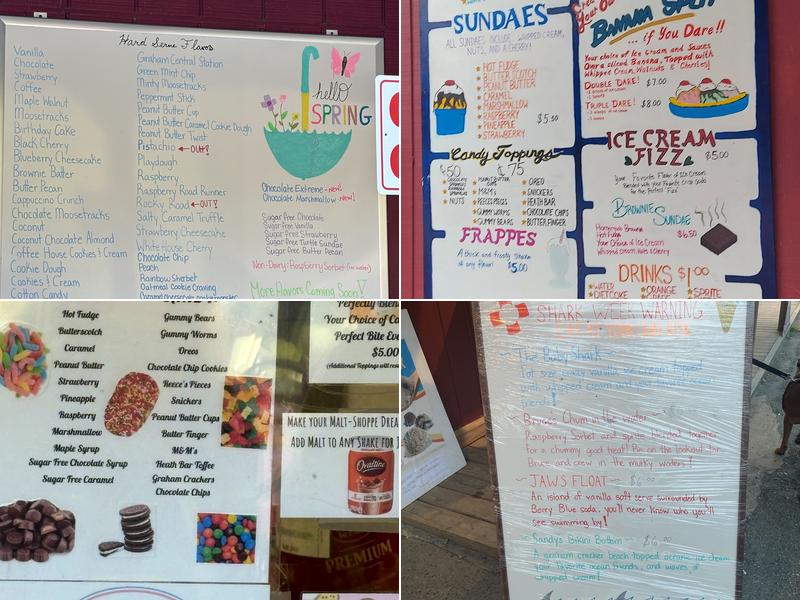 Hard Serve Flavors
Vanilla
Chocolate
Strawberry
Coffee
Maple Walnut
Moosetracks
Birthday Cake
Black Cherry
Blueberry Cheesecake
Brownie Batter
Butter Pecan
Cappuccino Crunch
Chocolate Moosetracks
Coconut
Coconut Chocolate Almond
Coffee House Cookies & Cream
Cookie Dough
Cookies & Cream
Cotton Candy
Graham Central Station
Green Mint Chip
Minty Moosetracks
Peppermint Stick
Peanut Butter Cup
Peanut Butter Caramel Cookie Dough
Peanut Butter Twist
Pistachio ←OUT!
Playdough
Raspberry
Raspberry Road Runner
Rocky Road ←OUT!
Salty Caramel Truffle
Strawberry Cheesecake
White House Cherry
Chocolate Chip
Peach
Rainbow Sherbet
Oatmeal Cookie Craving
hello
SPRING
Chocolate Extreme - new!
Chocolate Marshmallow new!
Sugar Free Chocolate
Sugar Free Vanilla
Sugar Free Strawberry
Sugar Free Turtle Sundae
Sugar Free Butter Pecan
Non-Dairy: Raspberry Sorbet
More Flavors Coming Soon!
SUNDAES
ALL SUNDAES INCLUDE: WHIPPED CREAM,
NUTS, AND A CHERRY!
HOT FUDGE
BUTTERSCOTCH
PEANUT BUTTER
CARAMEL
MARSHMALLOW
RASPBERRY
PINEAPPLE
STRAWBERRY
$5.50
Candy Toppings
¢50
NUTS
¢75
PEANUT BUTTER CUPS
M&M'S
REECES PIECES
GUMMY WORMS
GUMMY BEARS
OREO
SNICKERS
HEATH BAR
CHOCOLATE CHIPS
BUTTERFINGER
FRAPPES
A thick and frosty shake
of any flavor!
$5.00
BANANA SPLIT
...if You Dare!!
Your choice of Ice Cream and Sauces
Over a sliced Banana, Topped with
Whipped Cream, Walnuts & Cherries!
DOUBLE DARE! $7.00
TRIPLE DARE! $8.00
ICE CREAM
FIZZ
$5.00
Your Favorite Flavor of Ice Cream
Blended with your Favorite Crisp Soda
for the Perfect Fizz!
BROWNIE
SUNDAE
$6.50
Homemade Brownie
Hot Fudge
Your Choice of Ice Cream
Whipped Cream & Walnuts
DRINKS $1.00
WATER
DIET COKE
ORANGE
SPRITE
Hot Fudge
Butterscotch
Caramel
Peanut Butter
Strawberry
Pineapple
Raspberry
Marshmallow
Maple Syrup
Sugar Free Chocolate Syrup
Sugar Free Caramel
Gummy Bears
Gummy Worms
Oreos
Chocolate Chip Cookies
Reece's Pieces
Snickers
Peanut Butter Cups
Butter Finger
M&M's
Heath Bar Toffee
Graham Crackers
Chocolate Chips
Perfectly
Your Choice of
Perfect Bite
$5.00
(Additional Toppings will
MAKE YOUR MALT-SHOPPE
ADD MALT TO ANY SHAKE FOR
Ovaltine
PREMIUM
SHARK WEEK WARNING
The Baby Shark
Tot size crazy vanilla ice cream topped
with whipped cream and your favorite ocean
friends!
Bruce's Chum in the water
Raspberry Sorbet and sprite blended together
for a chummy good treat! Fin on the lookout for
Bruce and crew in the murky waters!
JAWS FLOAT ~ $6.00
An island of vanilla soft serve surrounded by
Berry Blue soda, you'll never know who you'll
see swimming by!
Sandy's Bikini Bottom ~ $6.00
A graham cracker beach topped oceanic ice cream
your favorite ocean friends, and waves of
whipped cream!